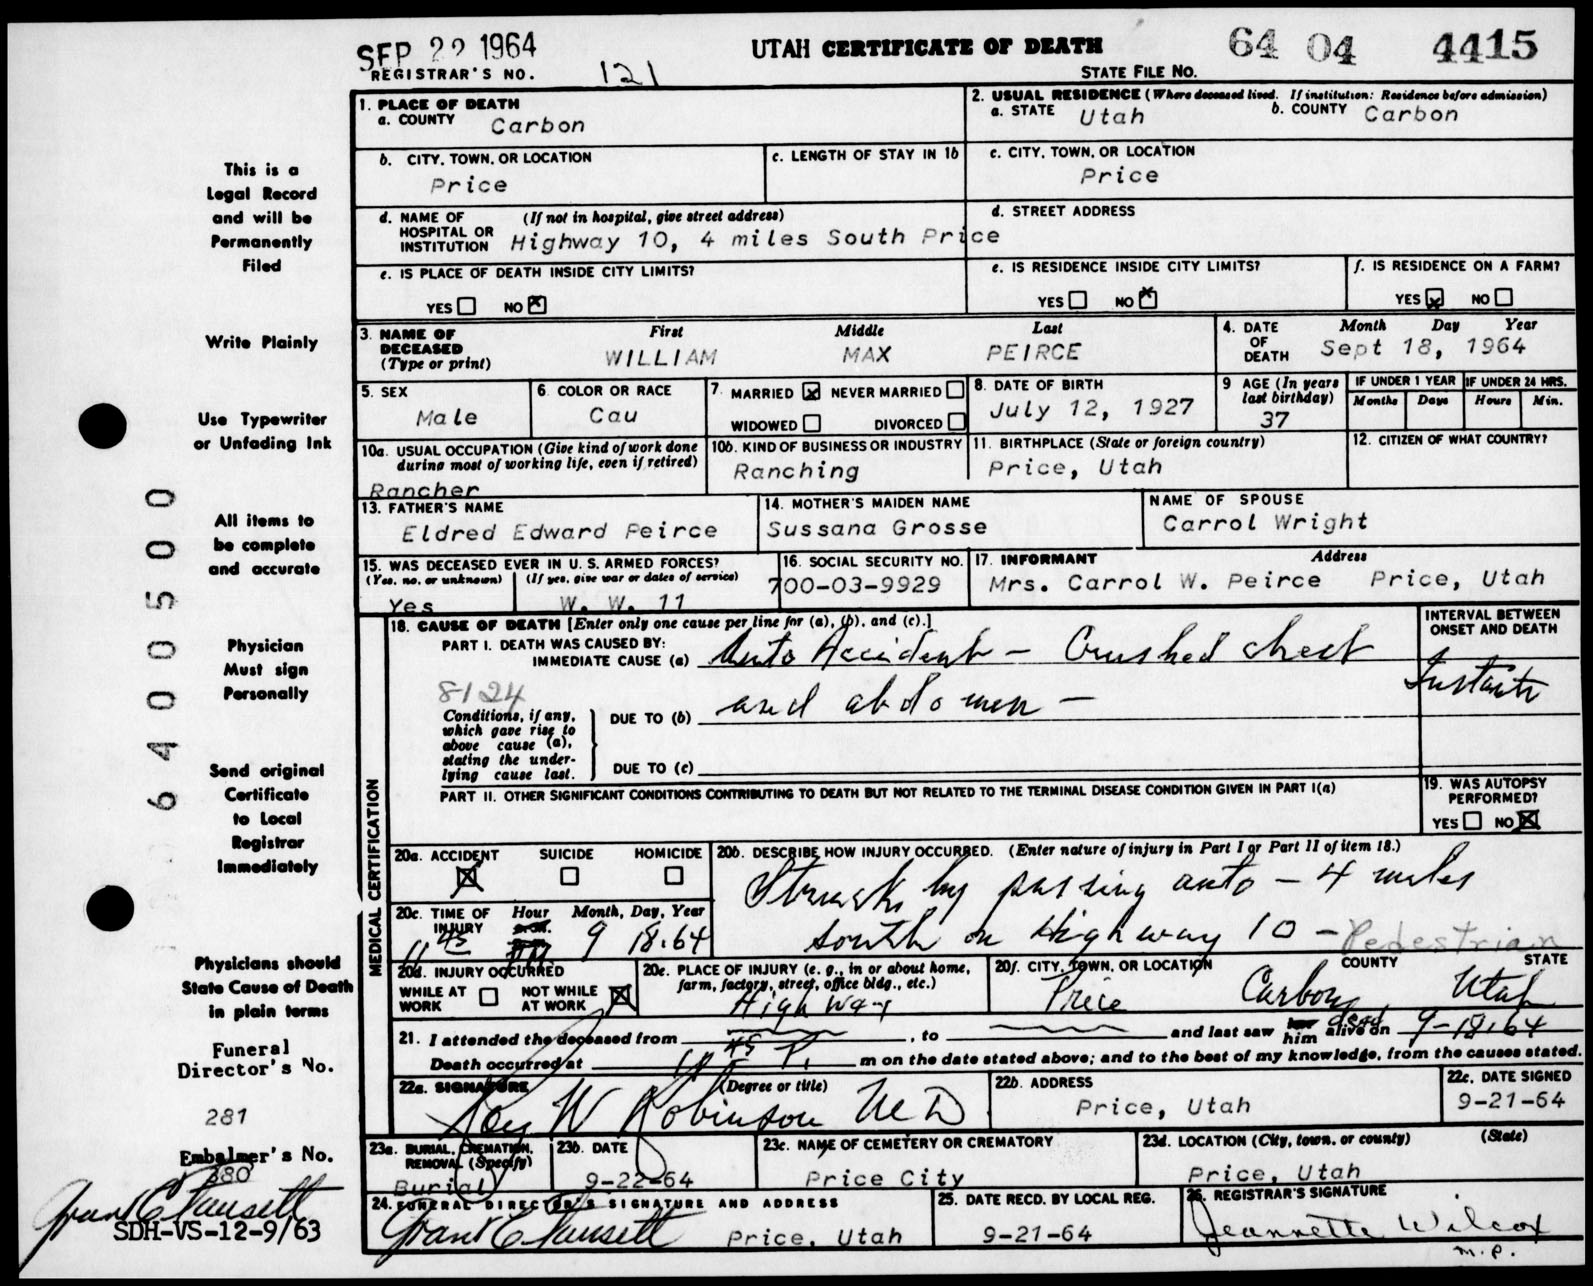 SEP 22 1964
UTAH CERTIFICATE OF DEATH
64 04 4415
REGISTRAR'S NO. 121
STATE FILE NO.
1. PLACE OF DEATH
a. COUNTY Carbon
2. USUAL RESIDENCE (Where deceased lived. If institution: Residence before admission)
a. STATE Utah b. COUNTY Carbon
b. CITY, TOWN, OR LOCATION
Price
c. LENGTH OF STAY IN 1b
c. CITY, TOWN, OR LOCATION
Price
d. NAME OF HOSPITAL OR INSTITUTION (If not in hospital, give street address)
Highway 10, 4 miles South Price
d. STREET ADDRESS
e. IS PLACE OF DEATH INSIDE CITY LIMITS?
YES NO x
e. IS RESIDENCE INSIDE CITY LIMITS?
YES NO x
f. IS RESIDENCE ON A FARM?
YES x NO
3. NAME OF DECEASED (Type or print)
First Middle Last
WILLIAM MAX PEIRCE
4. DATE OF DEATH
Month Day Year
Sept 18, 1964
5. SEX
Male
6. COLOR OR RACE
Cau
7. MARRIED x NEVER MARRIED
WIDOWED DIVORCED
8. DATE OF BIRTH
July 12, 1927
9 AGE (In years last birthday)
37
IF UNDER 1 YEAR
Months Days
IF UNDER 24 HRS.
Hours Min.
10a. USUAL OCCUPATION (Give kind of work done during most of working life, even if retired)
Rancher
10b. KIND OF BUSINESS OR INDUSTRY
Ranching
11. BIRTHPLACE (State or foreign country)
Price, Utah
12. CITIZEN OF WHAT COUNTRY?
13. FATHER'S NAME
Eldred Edward Peirce
14. MOTHER'S MAIDEN NAME
Sussana Grosse
NAME OF SPOUSE
Carrol Wright
15. WAS DECEASED EVER IN U. S. ARMED FORCES?
(Yes, no, or unknown) (If yes, give war or dates of service)
Yes W. W. 11
16. SOCIAL SECURITY NO.
700-03-9929
17. INFORMANT Address
Mrs. Carrol W. Peirce Price, Utah
MEDICAL CERTIFICATION
18. CAUSE OF DEATH [Enter only one cause per line for (a), (b), and (c).]
INTERVAL BETWEEN ONSET AND DEATH
PART I. DEATH WAS CAUSED BY:
IMMEDIATE CAUSE (a) Auto Accident - Crushed chest
8124
Conditions, if any, which gave rise to above cause (a), stating the underlying cause last.
DUE TO (b) and abdomen -
DUE TO (c)
PART II. OTHER SIGNIFICANT CONDITIONS CONTRIBUTING TO DEATH BUT NOT RELATED TO THE TERMINAL DISEASE CONDITION GIVEN IN PART I(a)
19. WAS AUTOPSY PERFORMED?
YES NO X
20a. ACCIDENT SUICIDE HOMICIDE
X
20b. DESCRIBE HOW INJURY OCCURRED. (Enter nature of injury in Part I or Part II of item 18.)
Struck by passing auto - 4 miles
south on Highway 10 - Pedestrian
20c. TIME OF INJURY Hour Month, Day, Year
a.m.
p.m.
11 45 PM 9 18-64
20d. INJURY OCCURRED
WHILE AT WORK NOT WHILE AT WORK X
20e. PLACE OF INJURY (e. g., in or about home, farm, factory, street, office bldg., etc.)
High way
20f. CITY, TOWN, OR LOCATION COUNTY STATE
Price Carbon Utah
21. I attended the deceased from , to and last saw her him alive on dead 9-18-64
Death occurred at 11 45 P. m on the date stated above; and to the best of my knowledge, from the causes stated.
22a. SIGNATURE (Degree or title)
Roy W Robinson MD
22b. ADDRESS
Price, Utah
22c. DATE SIGNED
9-21-64
23a. BURIAL, CREMATION, REMOVAL (Specify)
Burial
23b. DATE
9-22-64
23c. NAME OF CEMETERY OR CREMATORY
Price City
23d. LOCATION (City, town, or county) (State)
Price, Utah
24. FUNERAL DIRECTOR'S SIGNATURE AND ADDRESS
Grant C Fausett Price, Utah
25. DATE RECD. BY LOCAL REG.
9-21-64
26. REGISTRAR'S SIGNATURE
Jeannette Wilcox
m.p.
This is a
Legal Record
and will be
Permanently
Filed
Write Plainly
Use Typewriter
or Unfading Ink
All items to
be complete
and accurate
Physician
Must sign
Personally
Send original
Certificate
to Local
Registrar
Immediately
Physicians should
State Cause of Death
in plain terms
Funeral
Director's No.
281
Embalmer's No.
380
Grant C Fausett
SDH-VS-12-9/63
6400500